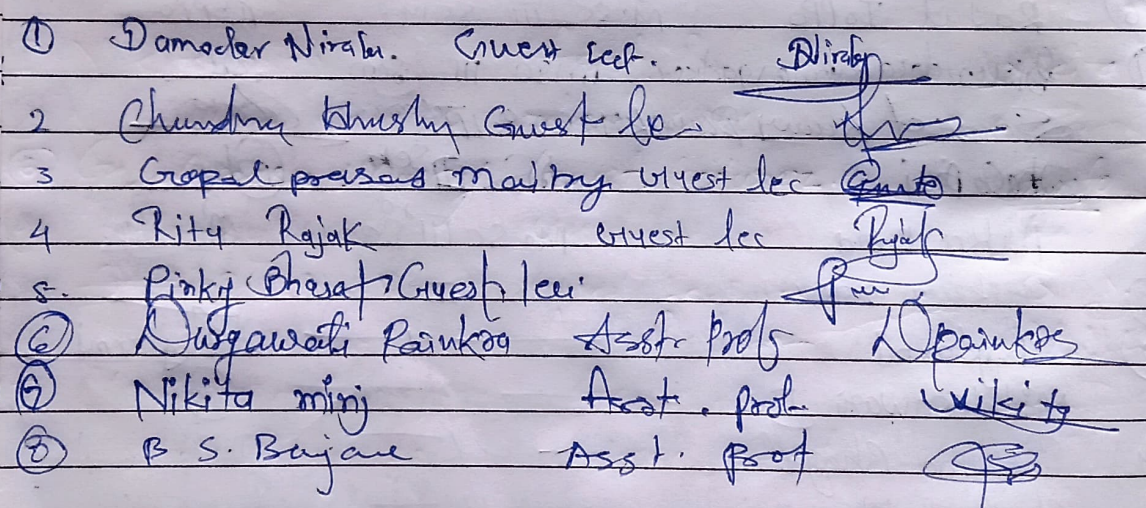 ① Damodar Nirala. Guest Lect. Nirala
2 Chandra bhushan Guest le
3 Gopal prasad guest lec
4 Rity Rajak Guest lec Rajak
5. Pinky Bharati Guest lec
⑥ Durgawati Painkra Asstt Prof DPainkra
⑦ Nikita minj Asst. prof. Nikita
⑧ B S. Banjare Asst. Prof